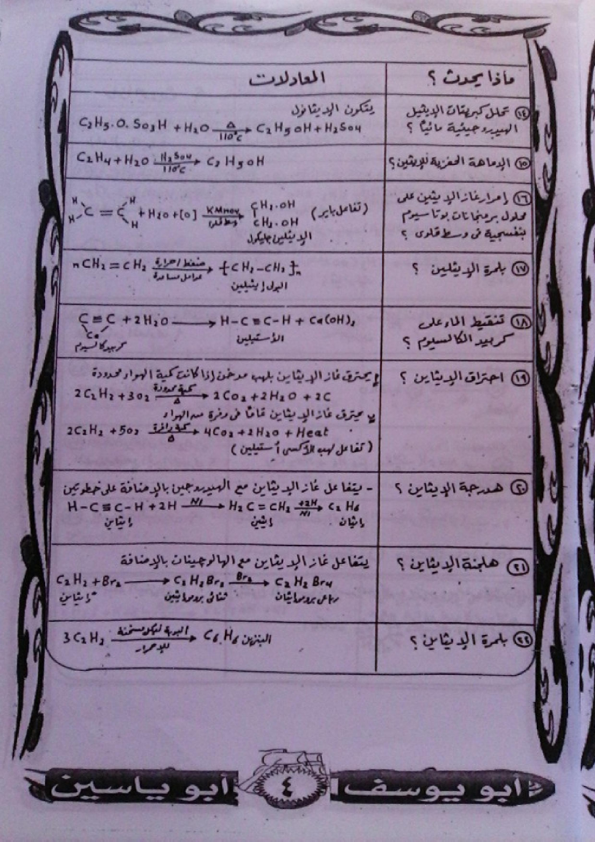 ماذا يحدث ؟ المعادلات
١٤ تحلل كبريتات الإيثيل
الهيدروجينية مائياً ؟
يتكون الإيثانول
C2H5.O.SO3H + H2O △ 110°C → C2H5OH + H2SO4
١٥ الإماهة الحفزية للإيثين ؟
C2H4 + H2O H2SO4 110°C → C2H5OH
١٦ إمرار غاز الإيثين على
محلول برمنجانات بوتاسيوم
بنفسجية فى وسط قلوى ؟
H H C = C H H + H2O + [O] KMnO4 وسط قلوى → CH2.OH CH2.OH (تفاعل باير)
الإيثيلين جليكول
١٧ بلمرة الإيثلين ؟
nCH2 = CH2 ضغط / حرارة → [CH2 - CH2]n
البولى إيثيلين
١٨ تنقيط الماء على
كربيد الكالسيوم ؟
C ≡ C Ca + 2H2O → H - C ≡ C - H + Ca(OH)2
كربيد كالسيوم الأستيلين
١٩ احتراق الإيثاين ؟
يحترق غاز الإيثاين بلهب مدخن إذا كانت كمية الهواء محدودة
2C2H2 + 3O2 كمية محدودة △ → 2CO2 + 2H2O + 2C
يحترق غاز الإيثاين تماماً فى وفرة من الهواء
2C2H2 + 5O2 كمية وافرة △ → 4CO2 + 2H2O + Heat
(تفاعل لهب الأكسى أستيلين)
٢٠ هدرجة الإيثاين ؟
- يتفاعل غاز الإيثاين مع الهيدروجين بالإضافة على خطوتين
H - C ≡ C - H + 2H Ni → H2C = CH2 +2H Ni → C2H6
إيثاين إيثين إيثان
٢١ هلجنة الإيثاين ؟
يتفاعل غاز الإيثاين مع الهالوجينات بالإضافة
C2H2 + Br2 → C2H2Br2 Br2 → C2H2Br4
إيثاين ثنائى بروموإيثين رباعى بروموإيثان
٢٢ بلمرة الإيثاين ؟
3C2H2 → C6H6 البنزين
للاحمرار
أبو يوسف ٤ أبو ياسين